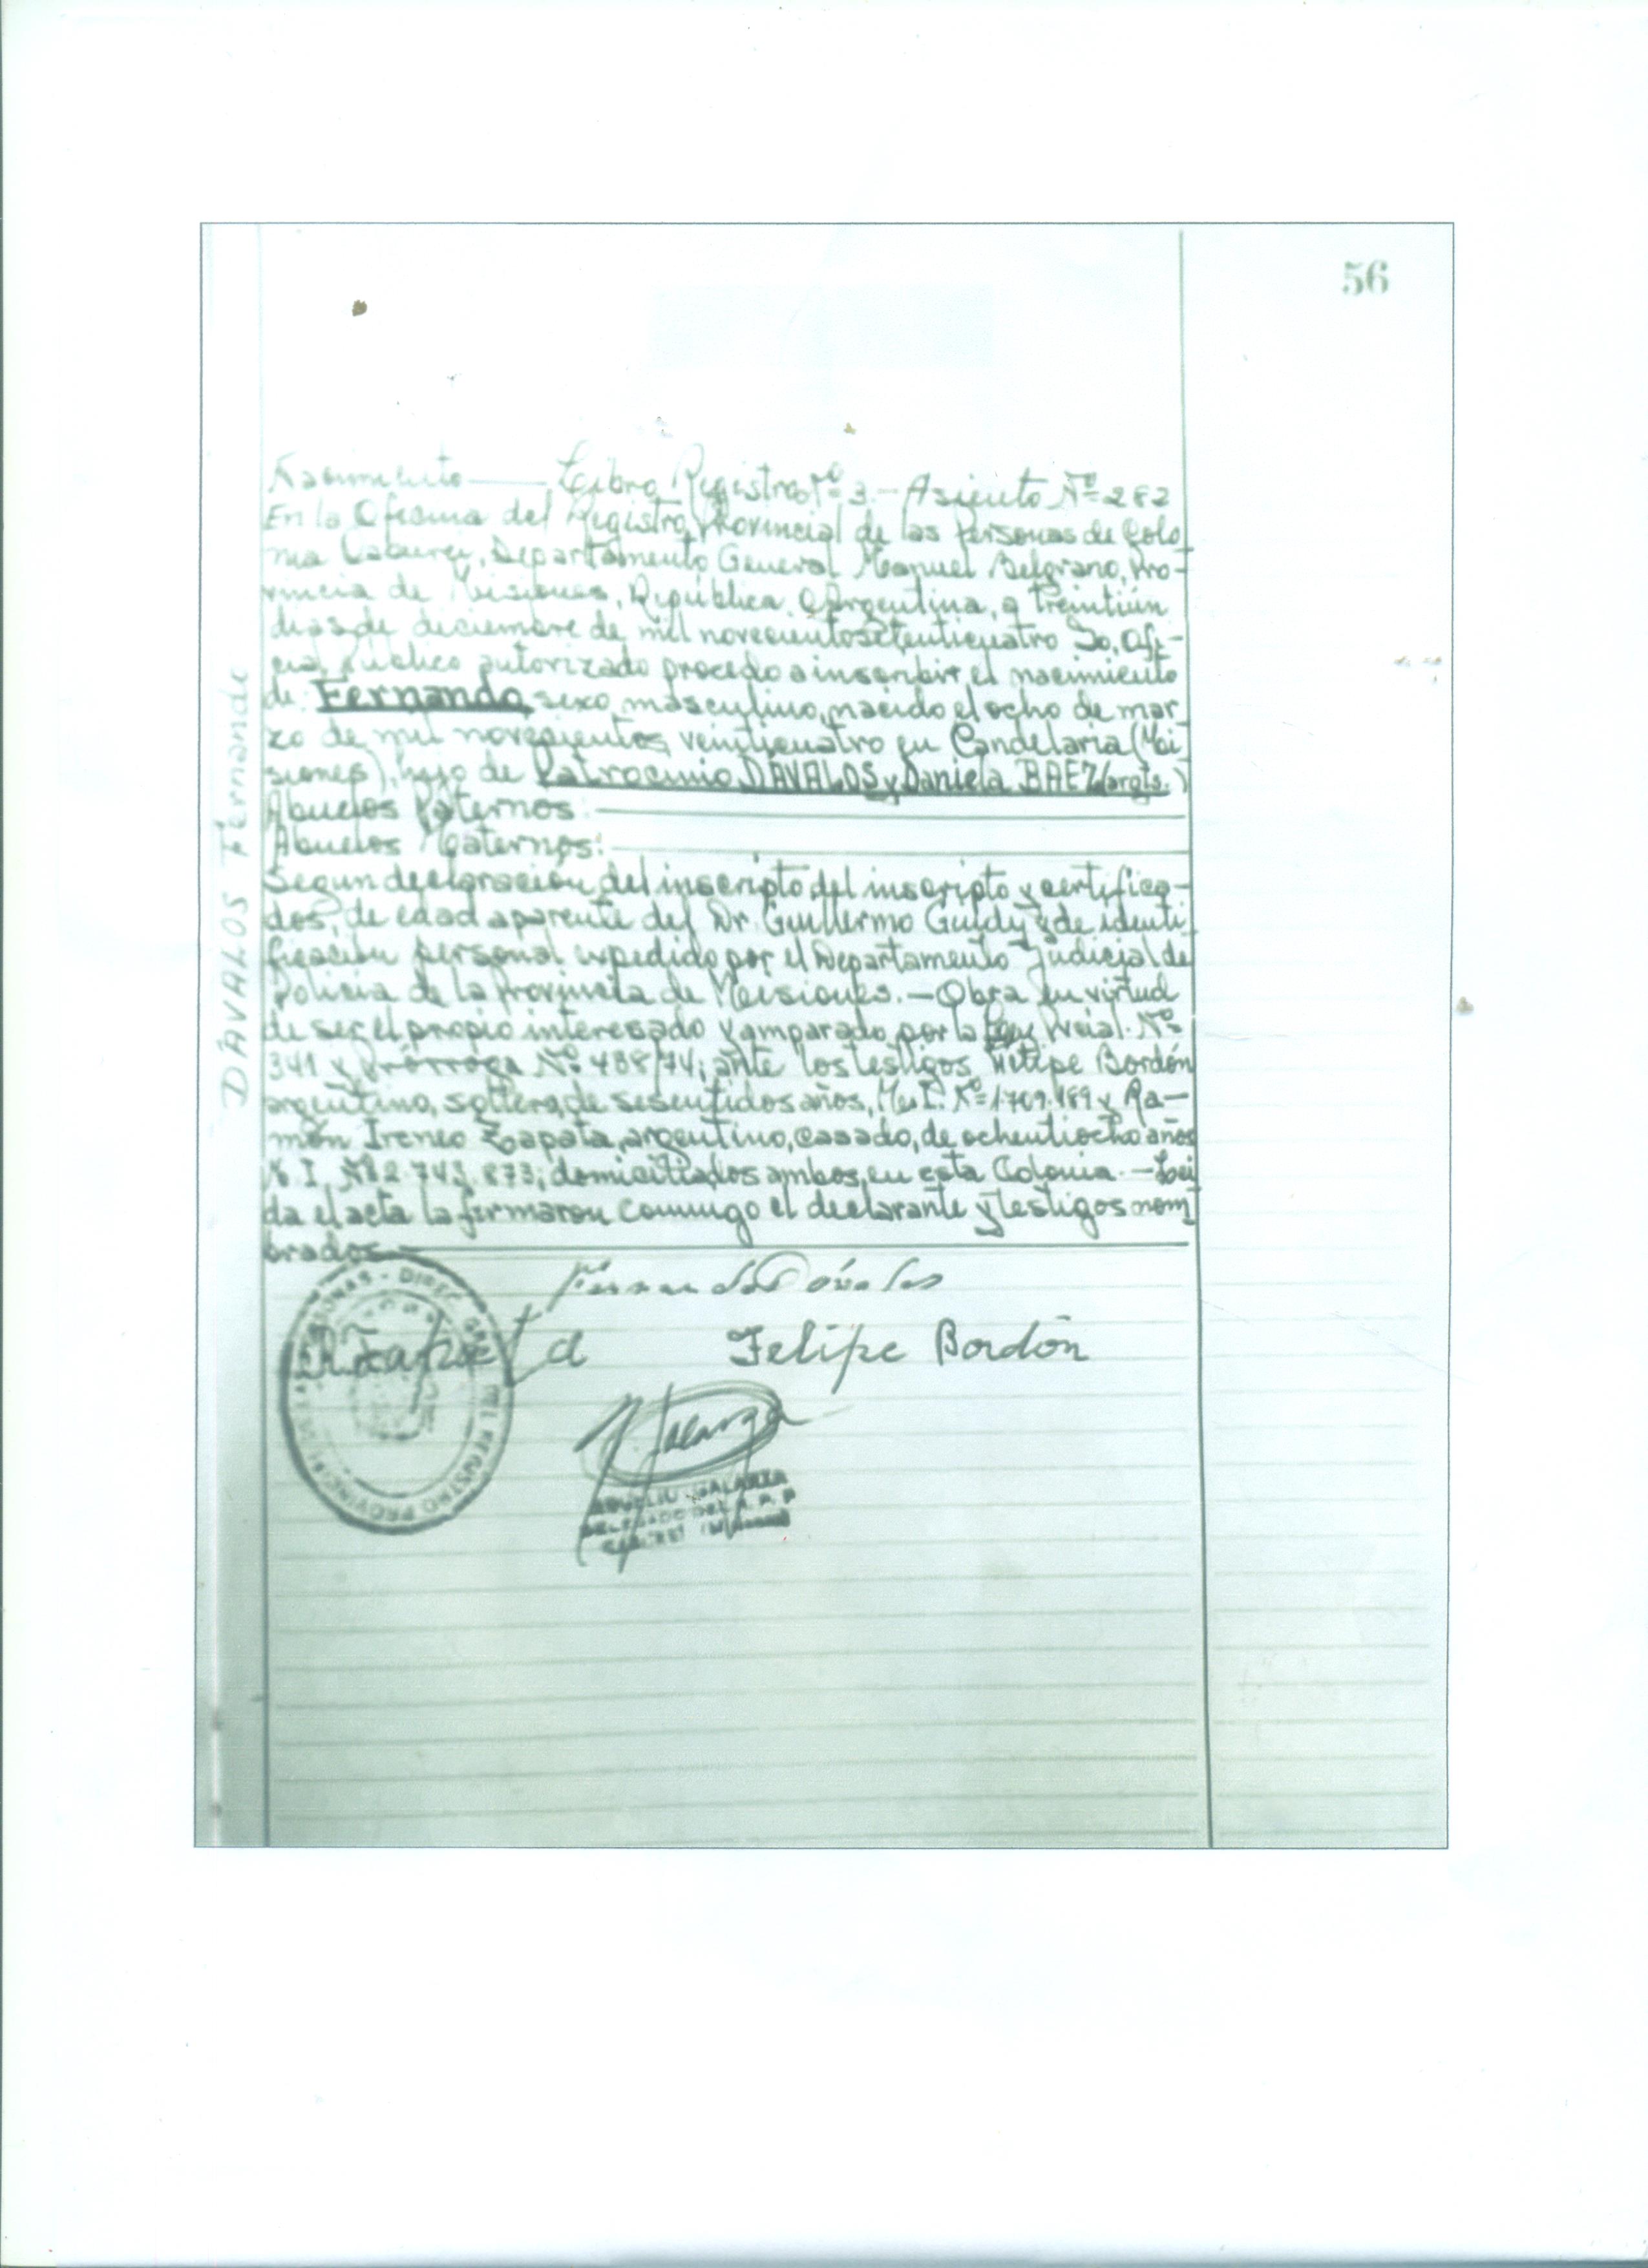 56
DAVALOS Fernando
Nacimiento — Libro Registro Nº 3.- Asiento Nº 282
En la Oficina del Registro Provincial de las Personas de Colo
nia, Departamento General Manuel Belgrano, Pro-
vincia de Misiones, República Argentina, a treintiún
días de diciembre de mil novecientos setenticuatro Yo, Ofi-
cial Público autorizado procedo a inscribir el nacimiento
de Fernando, sexo masculino, nacido el ocho de mar
zo de mil novecientos veinticuatro en Candelaria (Mi
siones), hijo de Patrocinio DAVALOS y Daniela BAEZ (argts.)
Abuelos Paternos:
Abuelos Maternos:
Segun declaración del inscripto del inscripto y certifica-
dos, de edad aparente del Dr. Guillermo y de identi
ficación personal expedido por el Departamento Judicial de
Policia de la Provincia de Misiones.— Obra en virtud
de ser el propio interesado y amparado por la Ley Pvcial. Nº
341 y Prórroga Nº 488/74; ante los testigos Felipe Bordón
argentino, soltero, de sesentidos años, M. I. Nº 1.709.189 y Ra-
món Ireneo Zapata, argentino, casado, de ochentiocho años
M. I. Nº 2.743.873; domiciliados ambos en esta Colonia.— Lei
da el acta la firmaron conmigo el declarante y testigos nom
brados.
Fernando Dávalos
R Zapata Felipe Bordón
PERSONAS - DIREC. GRAL. DEL REGISTRO PROVINCIAL DE LAS
GALARZA
DELEGADO DEL R. P. P.